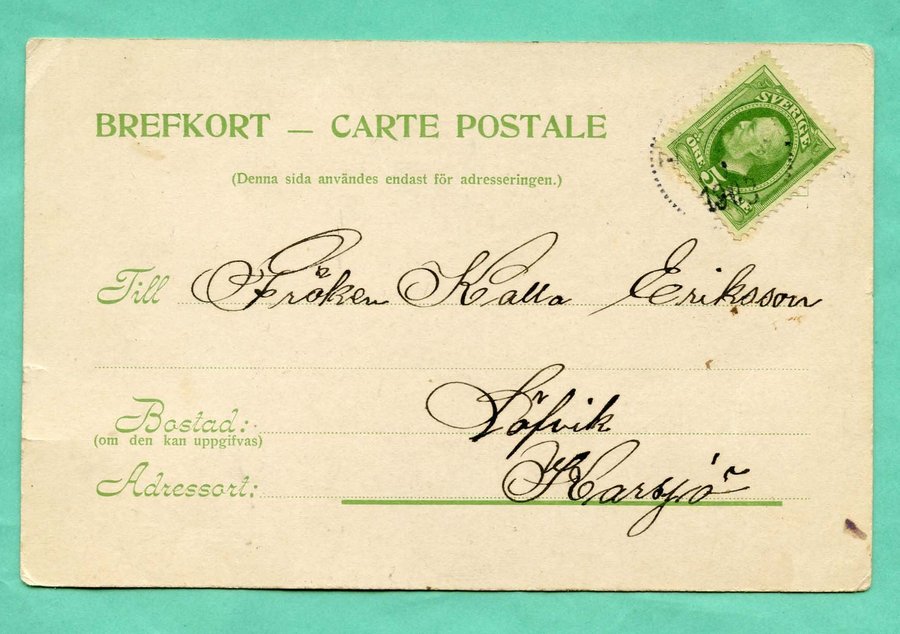 BREFKORT — CARTE POSTALE
(Denna sida användes endast för adresseringen.)
SVERIGE
5 ÖRE
Till Fröken Kalla Eriksson
Bostad: Löfvik
(om den kan uppgifvas)
Adressort: Karsjö